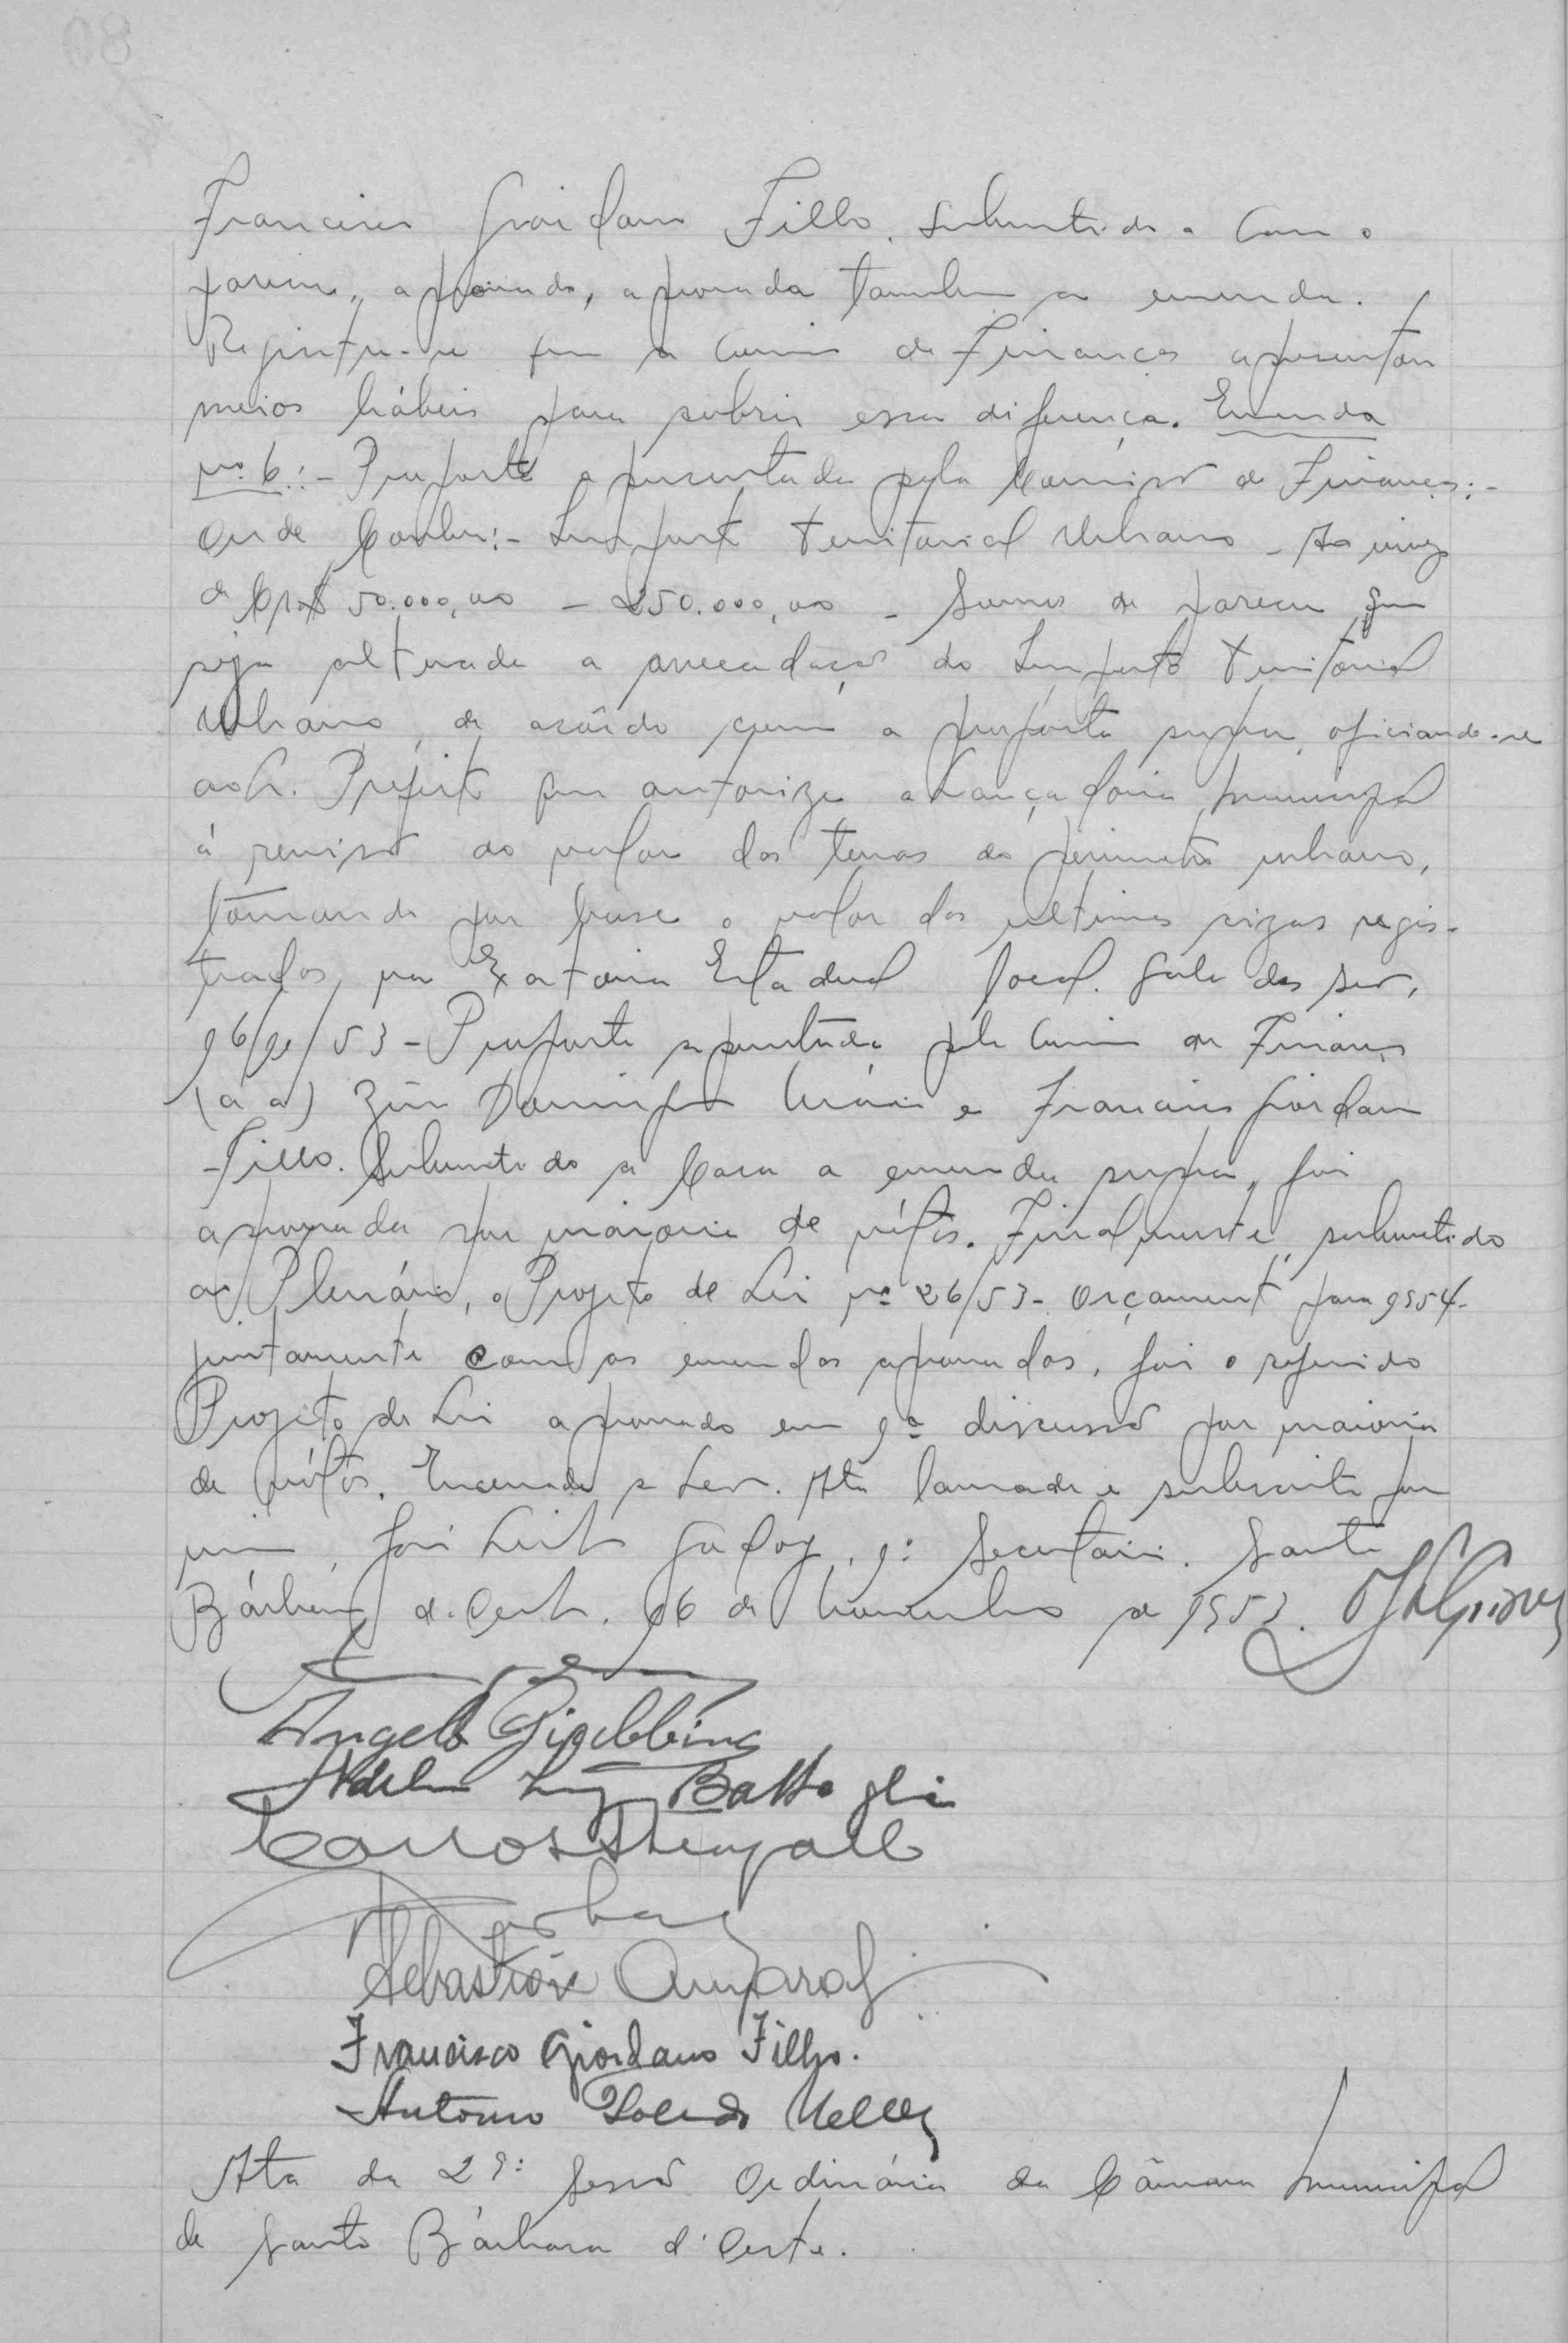 Francisco Giordano Filho. Submetido a Casa o
parecer, aprovado, aprovada tambem a emenda.
Registre-se que a Comissão de Finanças apresentou
meios hábeis para cobrir essa diferença. Emenda
nº 6:- Proposta apresentada pela Comissão de Finanças:-
Onde Couber:- Imposto Territorial Urbano - Ao invez
de Cr$ 50.000,00 - 250.000,00 - Somos de parecer que
seja alterada a arrecadação do Imposto Territorial
Urbano, de acôrdo com a proposta supra, oficiando-se
ao Sr. Prefeito que autorize a Lançadoria Municipal
á revisão do valor dos terrenos do perimetro urbano,
tomando por base o valor das ultimas sizas regis-
tradas na Exatoria Estadual local. Sala das Ses.,
16/11/53 - Proposta apresentada pela Comissão de Finanças
(a a) Domingos e Francisco Giordano
Filho. Submetido a Casa a emenda supra, foi
aprovada por maioria de vótos. Finalmente, submetido
ao Plenário, o Projeto de Lei nº 26/53 - Orçamento para 1954 -
juntamente com as emendas aprovadas, foi o referido
Projeto de Lei aprovado em 1ª discussão por maioria
de vótos. Encerrada a Ses. Ata lavrada e subscrita por
mim, José Leite Godoy, 1º Secretário. Santa
Bárbara d'Oeste, 16 de Novembro de 1953.
Angelo Giubbina
Luiz Battaglia
Carlos Steagall
Sebastião Amaral
Francisco Giordano Filho.
Antonio Toledo Nelly
Ata da 21ª Sessão Ordinária da Câmara Municipal
de Santa Bárbara d'Oeste.